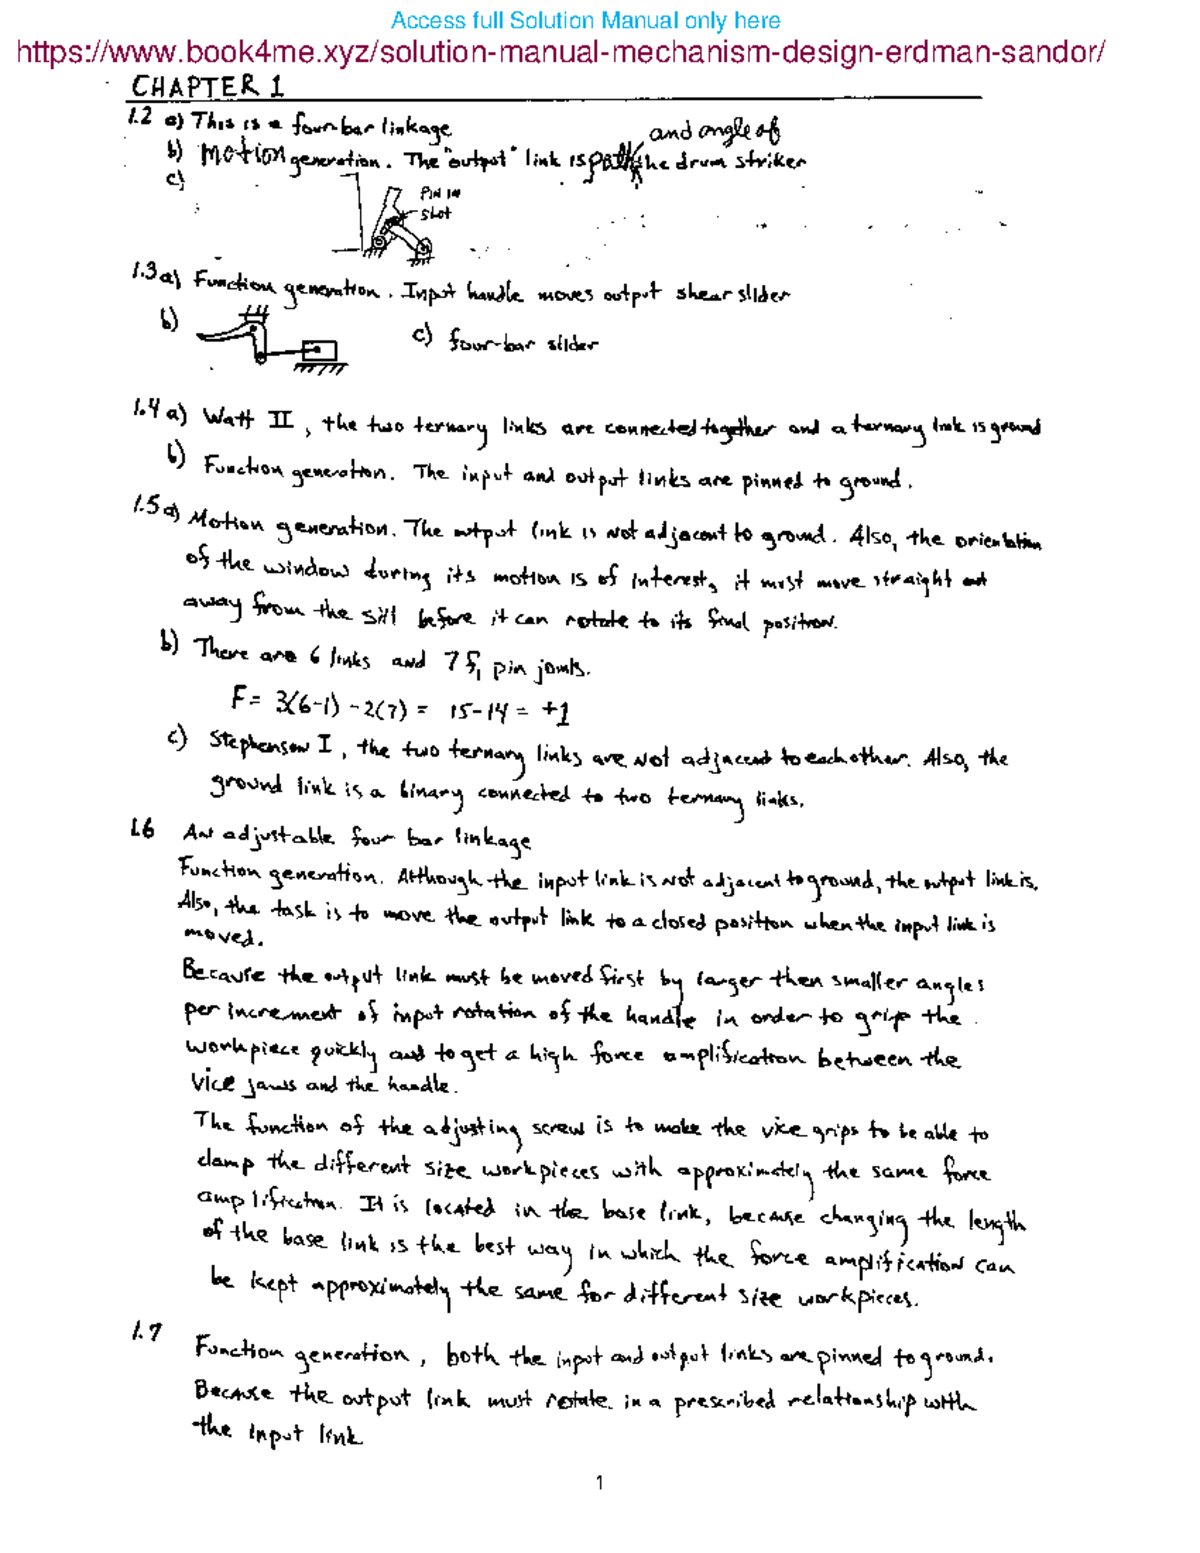 Access full Solution Manual only here
https://www.book4me.xyz/solution-manual-mechanism-design-erdman-sandor/
CHAPTER 1
1.2 a) This is a four-bar linkage
and angle of
b) Motion generation. The "output" link is path the drum striker
c)
Pin in
slot
1.3 a) Function generation. Input handle moves output shear slider
b)
c) four-bar slider
1.4 a) Watt II, the two ternary links are connected together and a ternary link is ground
b) Function generation. The input and output links are pinned to ground.
1.5 a) Motion generation. The output link is not adjacent to ground. Also, the orientation
of the window during its motion is of interest, it must move straight out
away from the sill before it can rotate to its final position.
b) There are 6 links and 7 f1 pin joints.
F = 3(6-1) - 2(7) = 15-14 = +1
c) Stephenson I, the two ternary links are not adjacent to each other. Also, the
ground link is a binary connected to two ternary links.
1.6 An adjustable four bar linkage
Function generation. Although the input link is not adjacent to ground, the output link is.
Also, the task is to move the output link to a closed position when the input link is
moved.
Because the output link must be moved first by larger then smaller angles
per increment of input rotation of the handle in order to grip the
workpiece quickly and to get a high force amplification between the
vice jaws and the handle.
The function of the adjusting screw is to make the vice grips to be able to
clamp the different size workpieces with approximately the same force
amplification. It is located in the base link, because changing the length
of the base link is the best way in which the force amplification can
be kept approximately the same for different size workpieces.
1.7 Function generation, both the input and output links are pinned to ground.
Because the output link must rotate in a prescribed relationship with
the input link
1